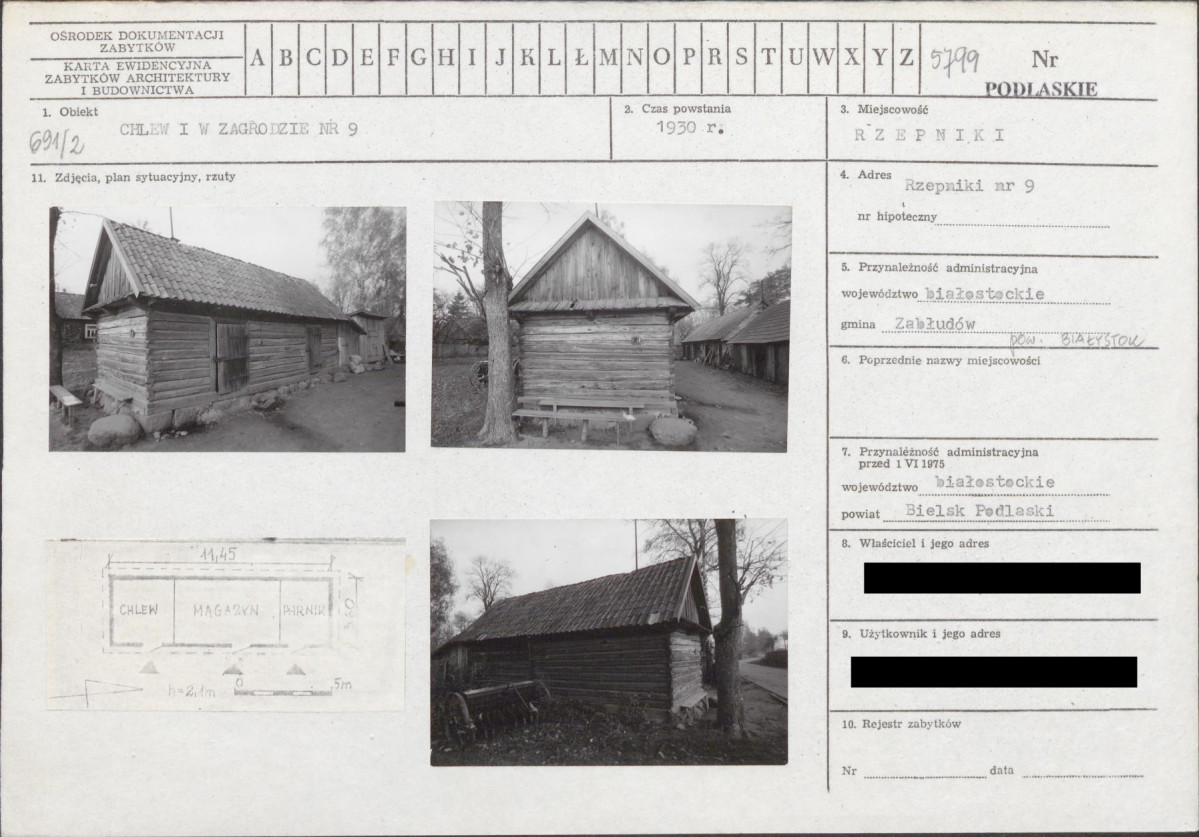 OŚRODEK DOKUMENTACJI
ZABYTKÓW
KARTA EWIDENCYJNA
ZABYTKÓW ARCHITEKTURY
I BUDOWNICTWA
A B C D E F G H I J K L Ł M N O P R S T U W X Y Z
5799
Nr
PODLASKIE
1. Obiekt
CHLEW I W ZAGRODZIE NR 9
691/2
2. Czas powstania
1930 r.
3. Miejscowość
RZEPNIKI
11. Zdjęcia, plan sytuacyjny, rzuty
4. Adres
Rzepniki nr 9
nr hipoteczny
5. Przynależność administracyjna
województwo białostockie
gmina Zabłudów
pow. BIAŁYSTOK
6. Poprzednie nazwy miejscowości
7. Przynależność administracyjna
przed 1 VI 1975
województwo białostockie
powiat Bielsk Podlaski
8. Właściciel i jego adres
9. Użytkownik i jego adres
10. Rejestr zabytków
Nr data
11,45
CHLEW MAGAZYN PARNIK
h=2,1m
0 5m